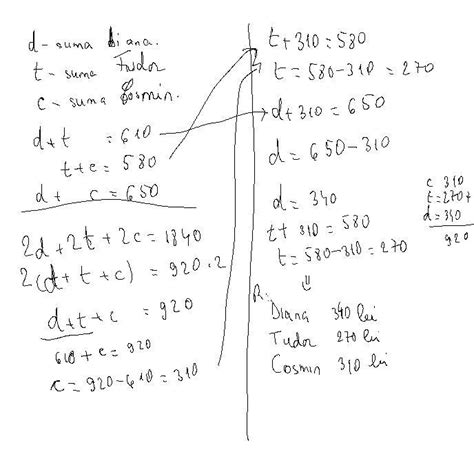 d - suma Diana.
t - suma Tudor
c - suma Cosmin.
d+t = 610
t+c = 580
d+ c = 650
2d+2t+2c = 1840
2(d+t+c) = 920·2
d+t+c = 920
610+c = 920
c = 920-610 = 310
t+310 = 580
t = 580-310 = 270
d+310 = 650
d = 650-310
d = 340
t+310 = 580
t = 580-310 = 270
⇓
R:
Diana 340 lei
Tudor 270 lei
Cosmin 310 lei
c 310
t=270+
d=340
920